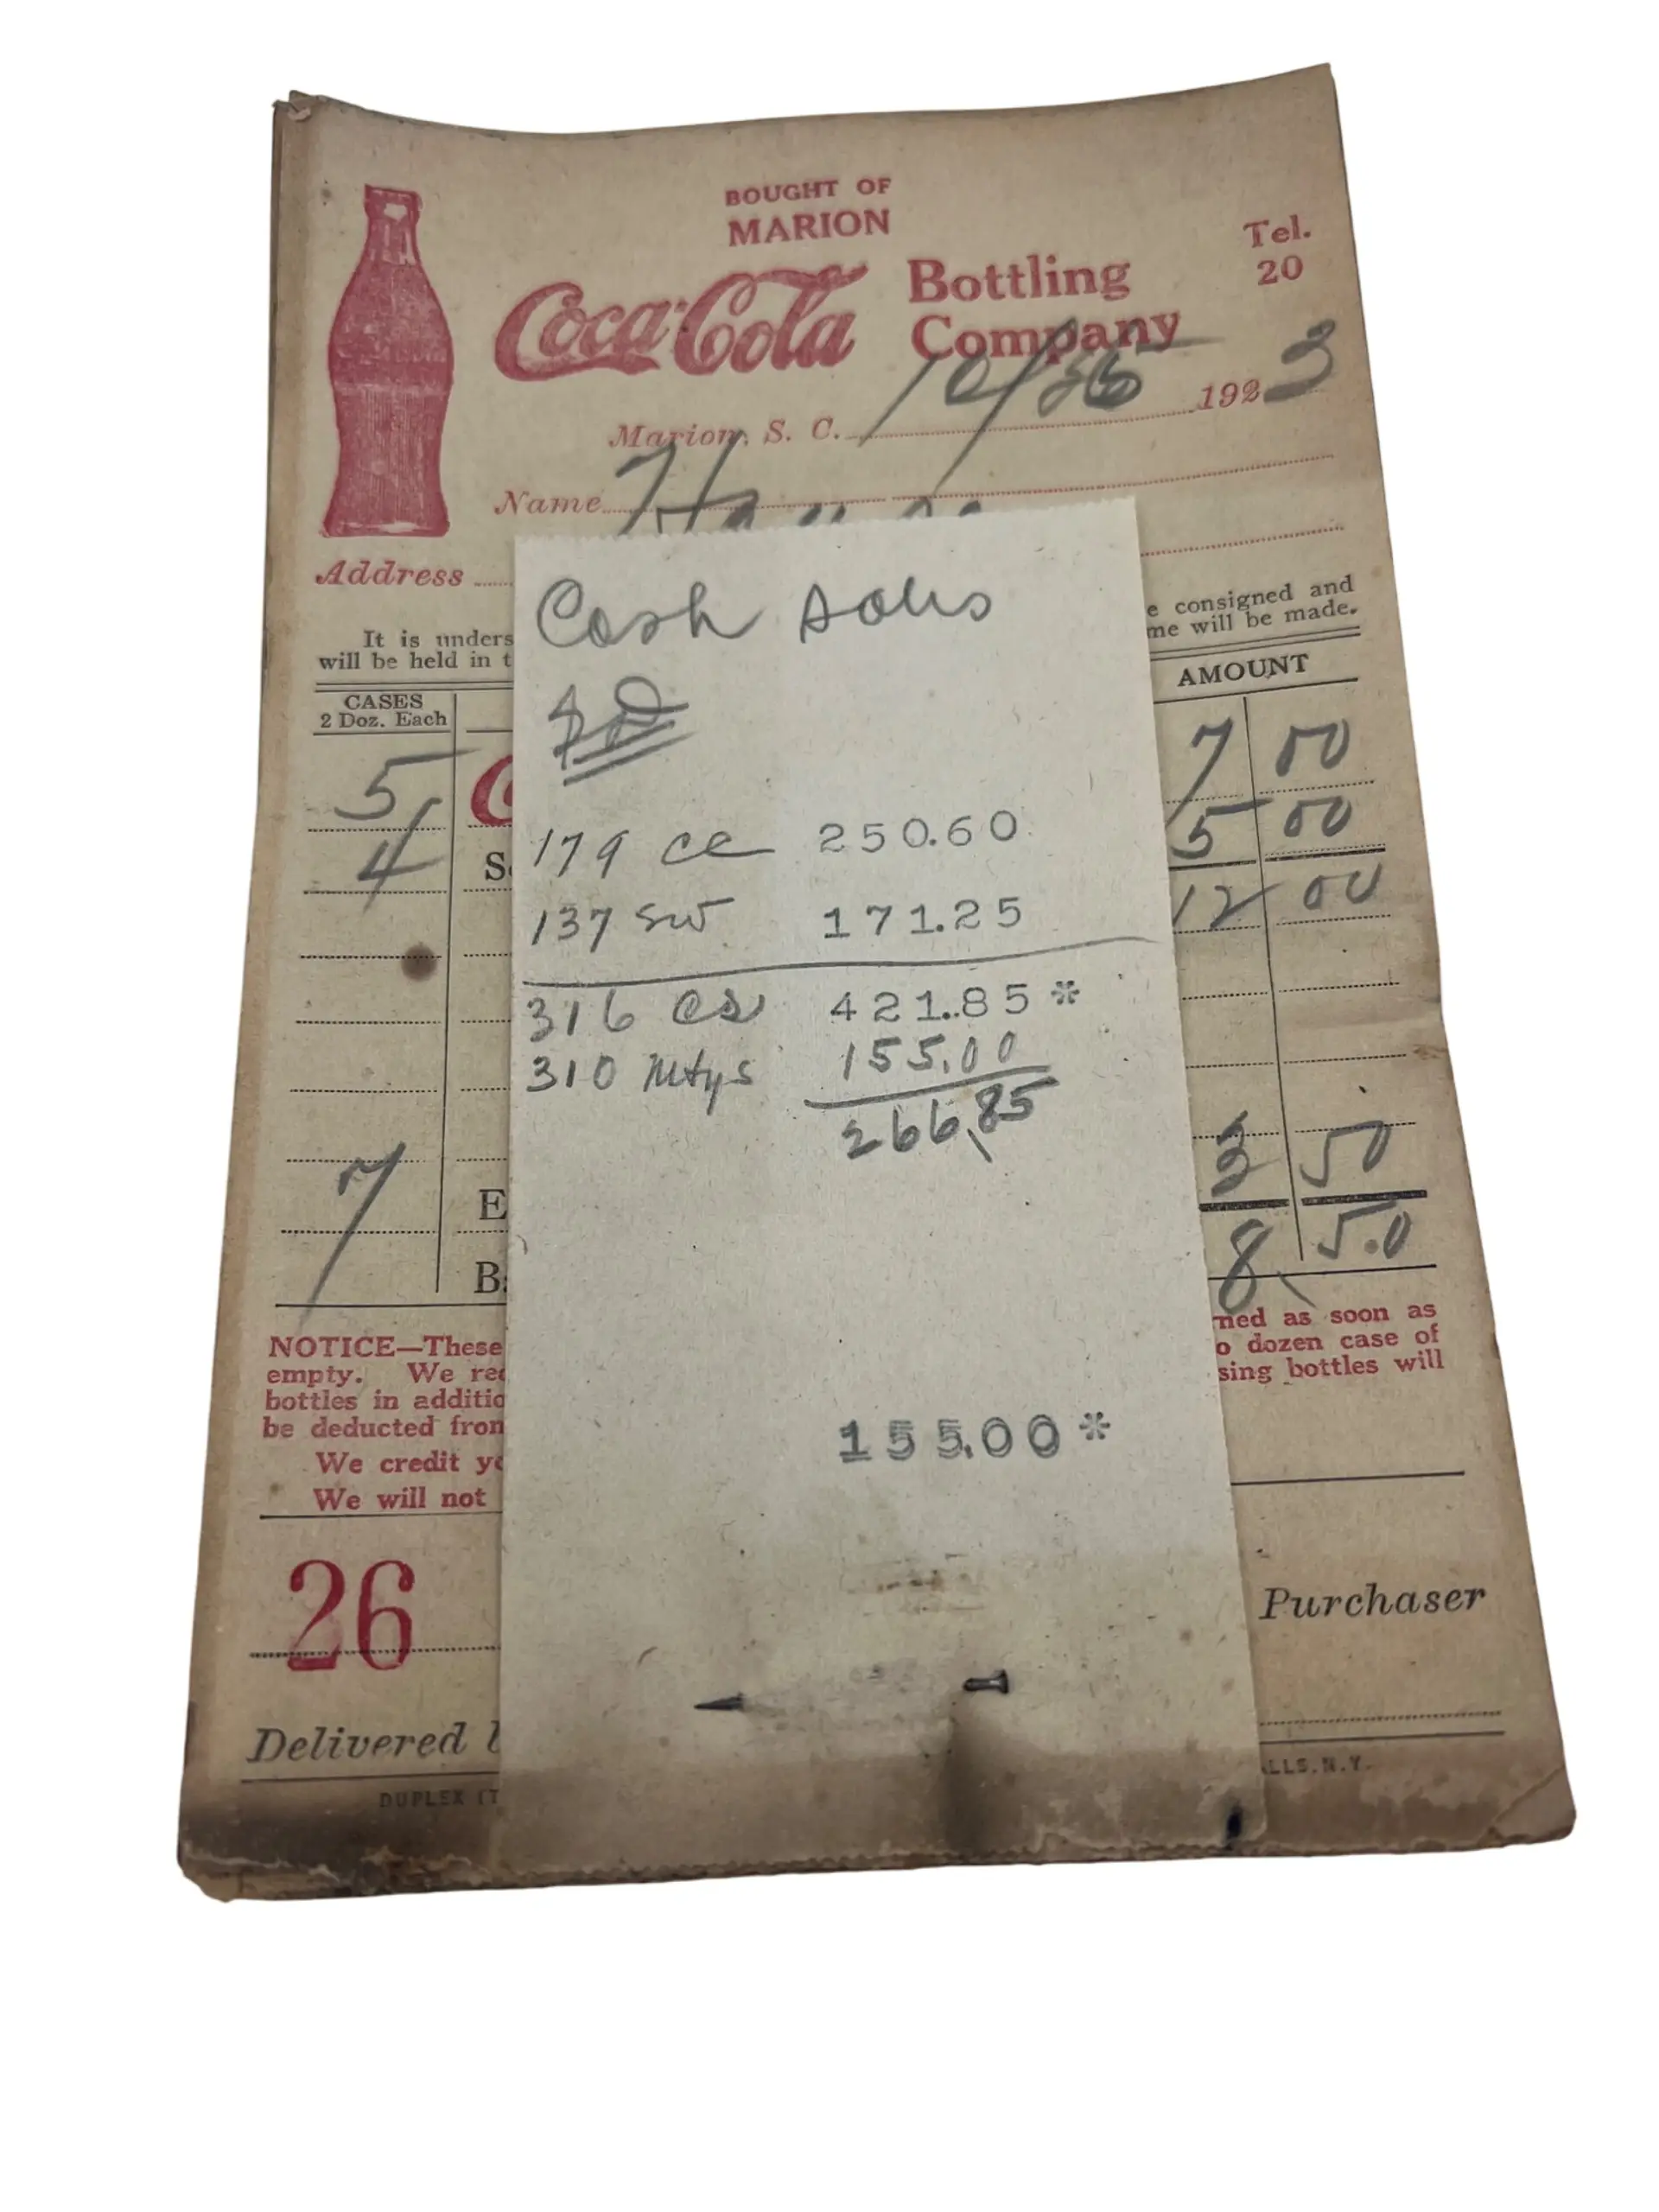 BOUGHT OF
MARION
Coca-Cola Bottling Company
Tel. 20
Marion, S. C. 10/26 1923
Name
Address
e consigned and
It is unders
me will be made.
will be held in t
CASES
2 Doz. Each
AMOUNT
5 C 7 00
4 S 5 00
12 00
7 E 3 50
B 8.50
Cash Sales
179 cc 250.60
137 sw 171.25
316 cs 421.85*
310 Mtys 155.00
266.85
155.00*
NOTICE—These
ned as soon as
empty. We re
o dozen case of
bottles in additio
sing bottles will
be deducted from
We credit y
We will not
26
Purchaser
Delivered b
DUPLEX (T
LLS, N.Y.